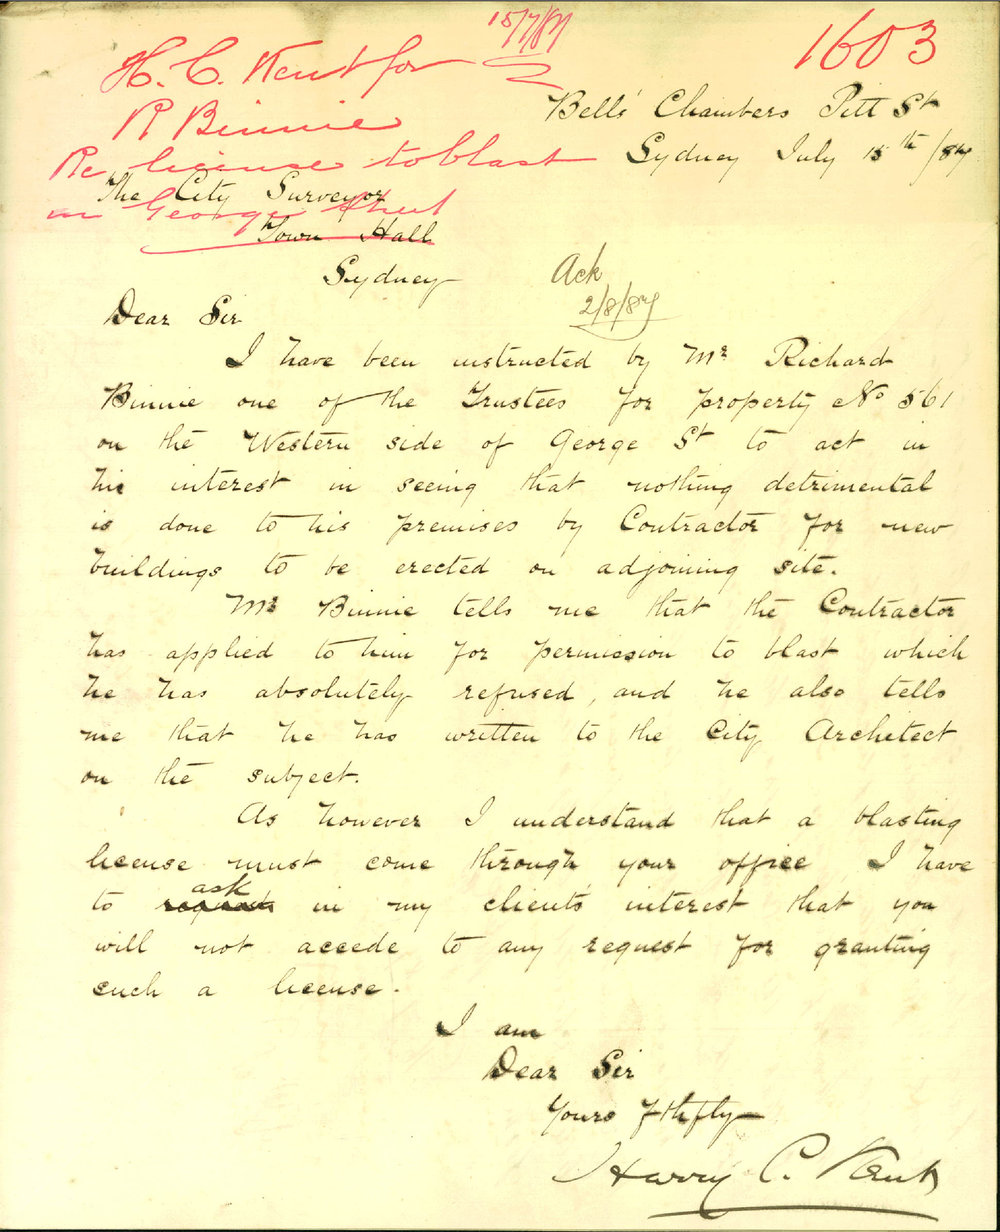 15/7/87
1603
H. C. Kent for
R Binnie
Re license to blast
in George Street
Bells' Chambers Pitt St
Sydney July 15th /87
The City Surveyor
Town Hall
Sydney
Ack
2/8/87
Dear Sir
I have been instructed by Mr Richard
Binnie one of the Trustees for property No 561
on the Western side of George St to act in
his interest in seeing that nothing detrimental
is done to his premises by Contractor for new
buildings to be erected on adjoining site.
Mr Binnie tells me that the Contractor
has applied to him for permission to blast which
he has absolutely refused, and he also tells
me that he has written to the City Architect
on the subject.
As however I understand that a blasting
license must come through your office I have
to ask in my clients interest that you
will not accede to any request for granting
such a license.
I am
Dear Sir
Yours fthfly
Harry C. Kent